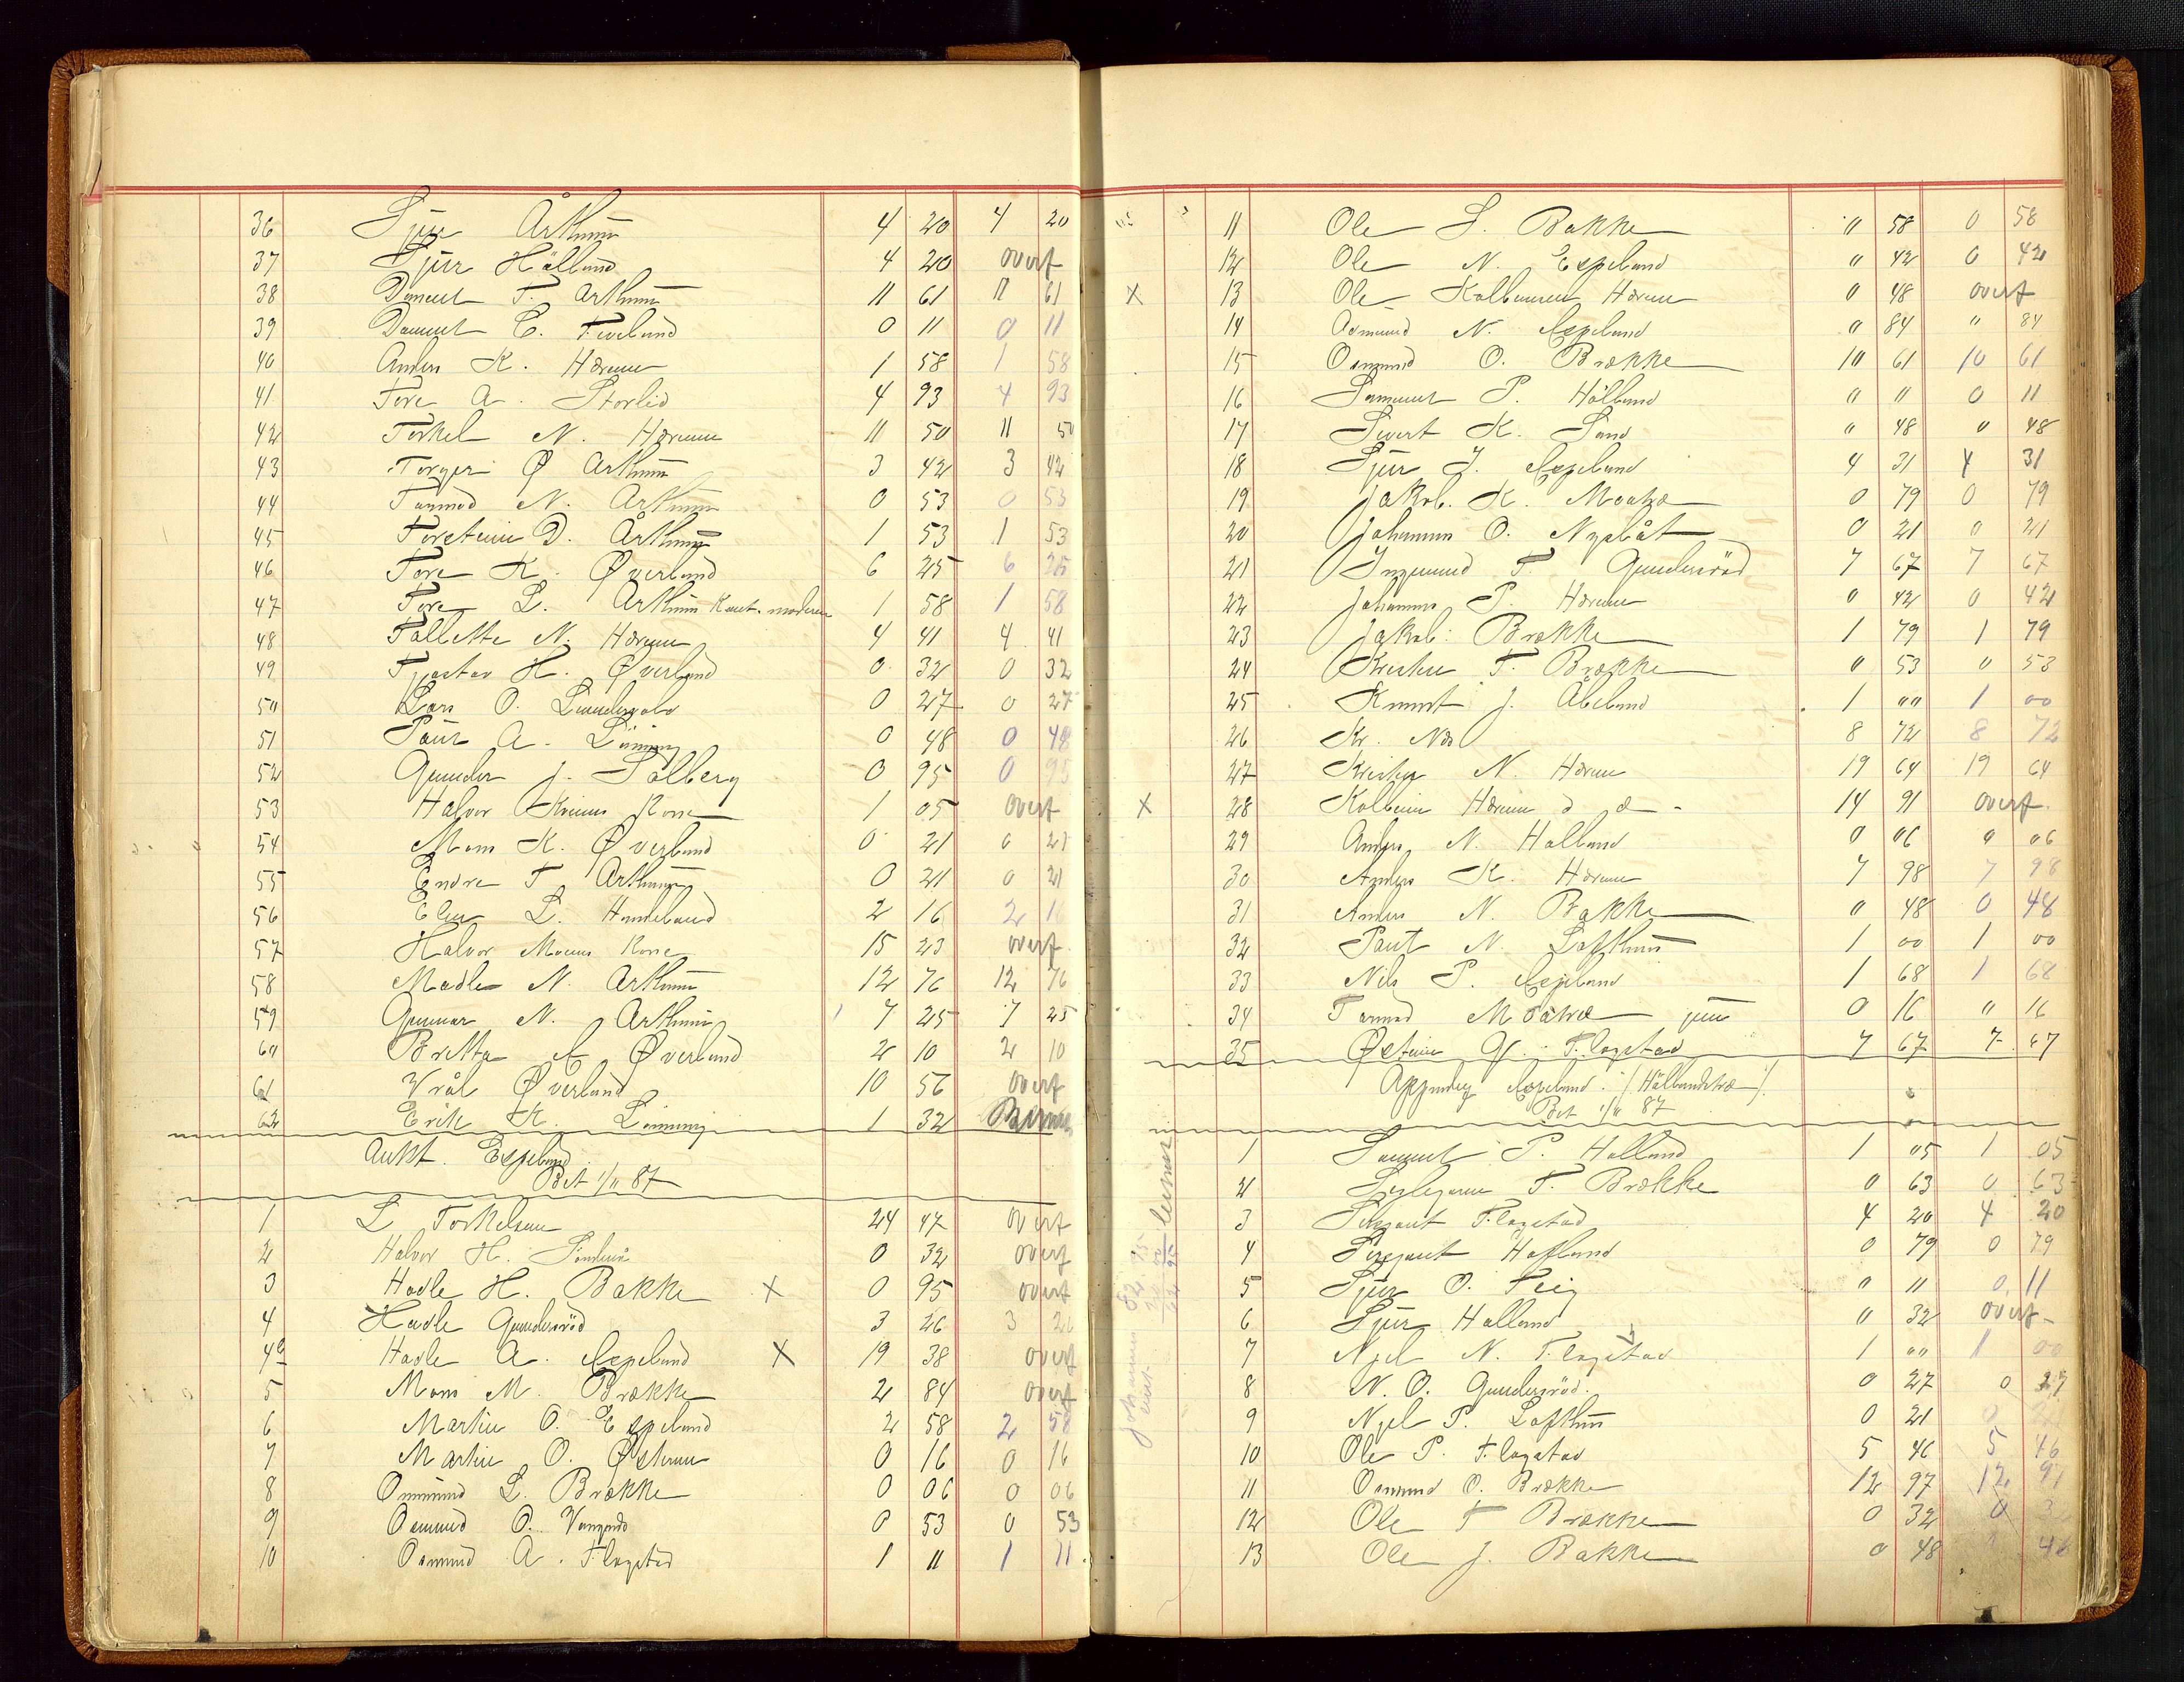 36 Sjur Årthun 4 20 4 20
37 Sjur Hålland 4 20 overf
38 Daniel T. Arthun 11 61 11 61
39 Daniel E. Tveland 0 11 0 11
40 Anders K. Hærem 1 58 1 58
41 Tore A. Storlid 4 93 4 93
42 Torkel N. Hærem 11 50 11 50
43 Torger Ø Arthun 3 42 3 42
44 Tormod N. Arthun 0 53 0 53
45 Torstein D. Årthun 1 53 1 53
46 Tore K. Øverland 6 25 6 25
47 Tore L. Arthun 1 58 1 58
48 Tallette N. Hærem 4 41 4 41
49 Tjostav H. Øverland 0 32 0 32
50 Lars O. 0 27 0 27
51 Paul A. Lining 0 48 0 48
52 Gunder J. Solberg 0 95 0 95
53 Halvor 1 05 overf
54 Mons K. Øverland 0 21 0 21
55 Endre T. Arthun 0 21 0 21
56 Elen L. 2 16 2 16
57 Halvor Mouns 15 23 overf
58 Madle N. Arthun 12 76 12 76
59 Gunnar N. Arthun 7 25 7 25
60 Britta Øverland 2 10 2 10
61 Vrål Øverland 10 56 overf
62 Erik K. Lining 1 32
Aukt. Espeland
Bet 1/11 87
1 L Torkelsen 24 47 overf
2 Halvor H. 0 32 overf
3 Hadle H. Bakke X 0 95 overf
4 Hadle Gundersrød 3 26 3 26
4a Hadle A. Espeland X 19 38 overf
5 Mons M. Brække 2 84 overf
6 Martin O. Espeland 2 58 2 58
7 Martin O. 0 16 0 16
8 Osmund L. Brække 0 06 0 06
9 Osmund O. 0 53 0 53
10 Osmund A. Flogstad 1 11 1 11
11 Ole S. Bakke " 58 0 58
12 Ole N. Espeland " 42 0 42
X 13 Ole Kolbensen Hærem 0 48 overf
14 Osmund N. Espeland 0 84 " 84
15 Osmund O. Brække 10 61 10 61
16 Sammel P. Hålland " 11 0 11
17 Sivert K. Sand " 48 0 48
18 Sjur J. Espeland 4 31 4 31
19 Jakob. K. 0 79 0 79
20 Johannes O. 0 21 0 21
21 Ingmund T. Gundersrød 7 67 7 67
22 Johannes P. Hærem 0 42 0 42
23 Jakob: Brække 1 79 1 79
24 T. Brække 0 53 0 53
25 Knut J. Åbeland 1 "" 1 00
26 Kr. Næs 8 72 8 72
27 N. Hærem 19 64 19 64
X 28 Kolbein Hærem 14 91 overf.
29 Anders N. Halland 0 06 0 06
30 Anders K. Hærem 7 98 7 98
31 Anders N. Bakke 0 48 0 48
32 Paul N. Lofthus 1 00 1 00
33 Nils P. Espeland 1 68 1 68
34 Tormod 0 16 " 16
35 Østein G. Flogstad 7 67 7 67
Espeland.
Bet 1/11 87
1 Sammel P. Halland 1 05 1 05
2 T. Brække 0 63 0 63
3 Sersjant Flogstad 4 20 4 20
4 Sersjant Hafland 0 79 0 79
5 Sjur O. Feig " 11 0 11
6 Sjur Halland 0 32 overf
7 Njel N. Flogstad 1 "" 1 00
8 N. O. Gundersrød. 0 27 0 27
9 Njel P. Lofthus 0 21
10 Ole P. Flogstad 5 46 5 46
11 Osmund O. Brække 12 97 12 97
12 Ole T Brække 0 32 0 32
13 Ole J. Bakke 0 48 48